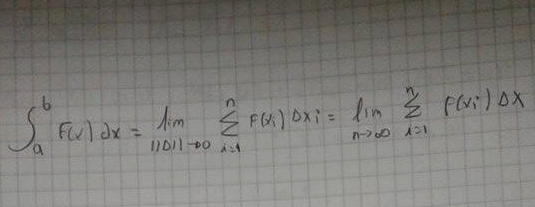 ∫_a^b F(x) dx = lim_{||Δ||→0} ∑_{i=1}^n F(x_i) Δx_i = lim_{n→∞} ∑_{i=1}^n F(x_i) Δx